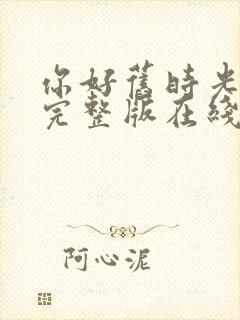 你好舊時光
完整版在綫
阿心泥